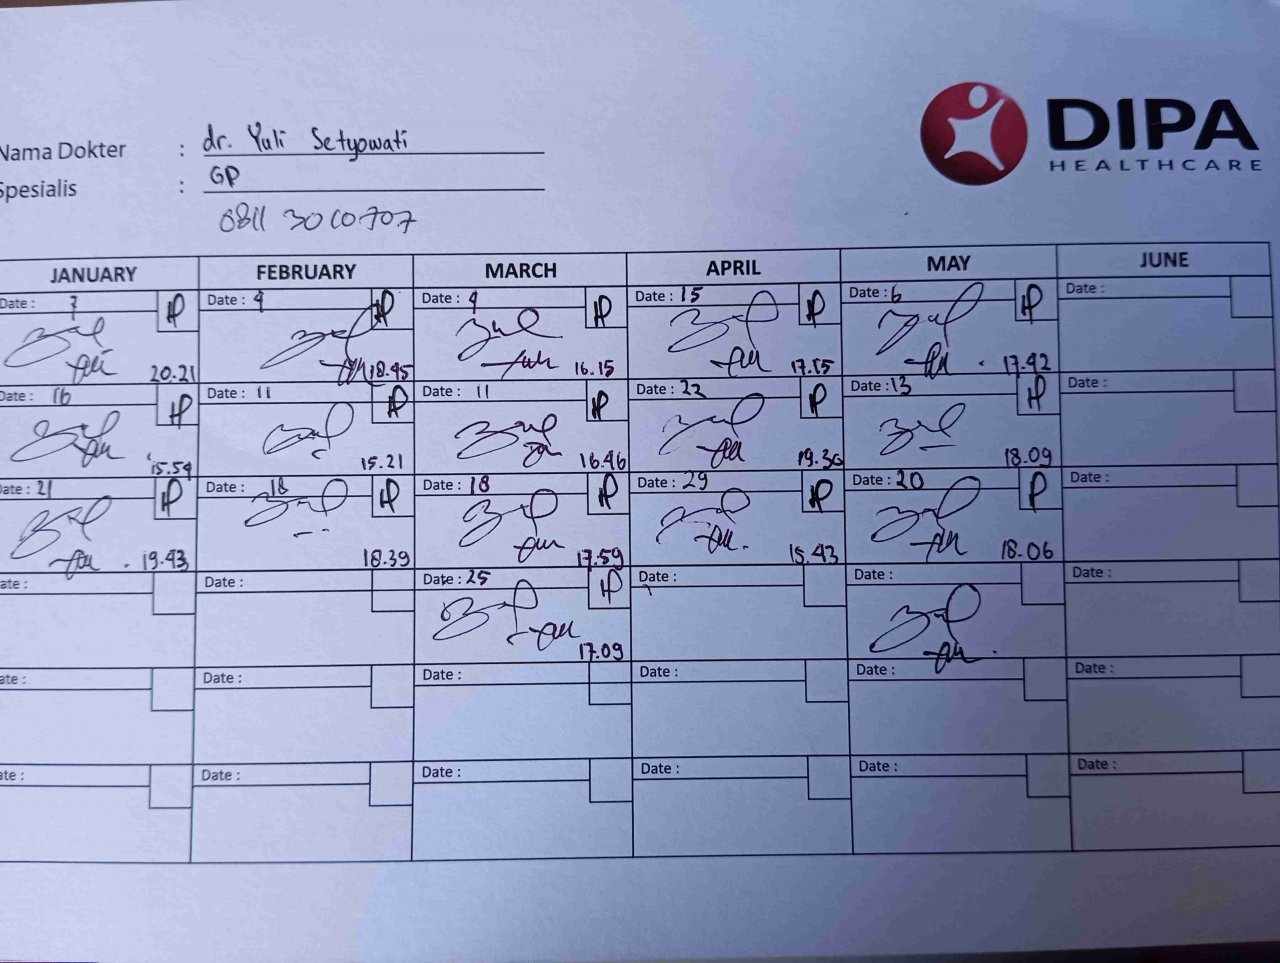 DIPA
HEALTHCARE
Nama Dokter : dr. Yuli Setyowati
Spesialis : GP
0811 3010707
JANUARY FEBRUARY MARCH APRIL MAY JUNE
Date : 7 Date : 4 Date : 4 Date : 15 Date : 6 Date :
20.21 18.45 16.15 17.15 17.42
Date : 16 Date : 11 Date : 11 Date : 22 Date : 13 Date :
15.54 15.21 16.46 19.30 18.09
Date : 21 Date : 18 Date : 18 Date : 29 Date : 20 Date :
19.43 18.39 17.59 15.43 18.06
ate : Date : Date : 25 Date : Date : Date :
17.09
ate : Date : Date : Date : Date : Date :
ate : Date : Date : Date : Date : Date :